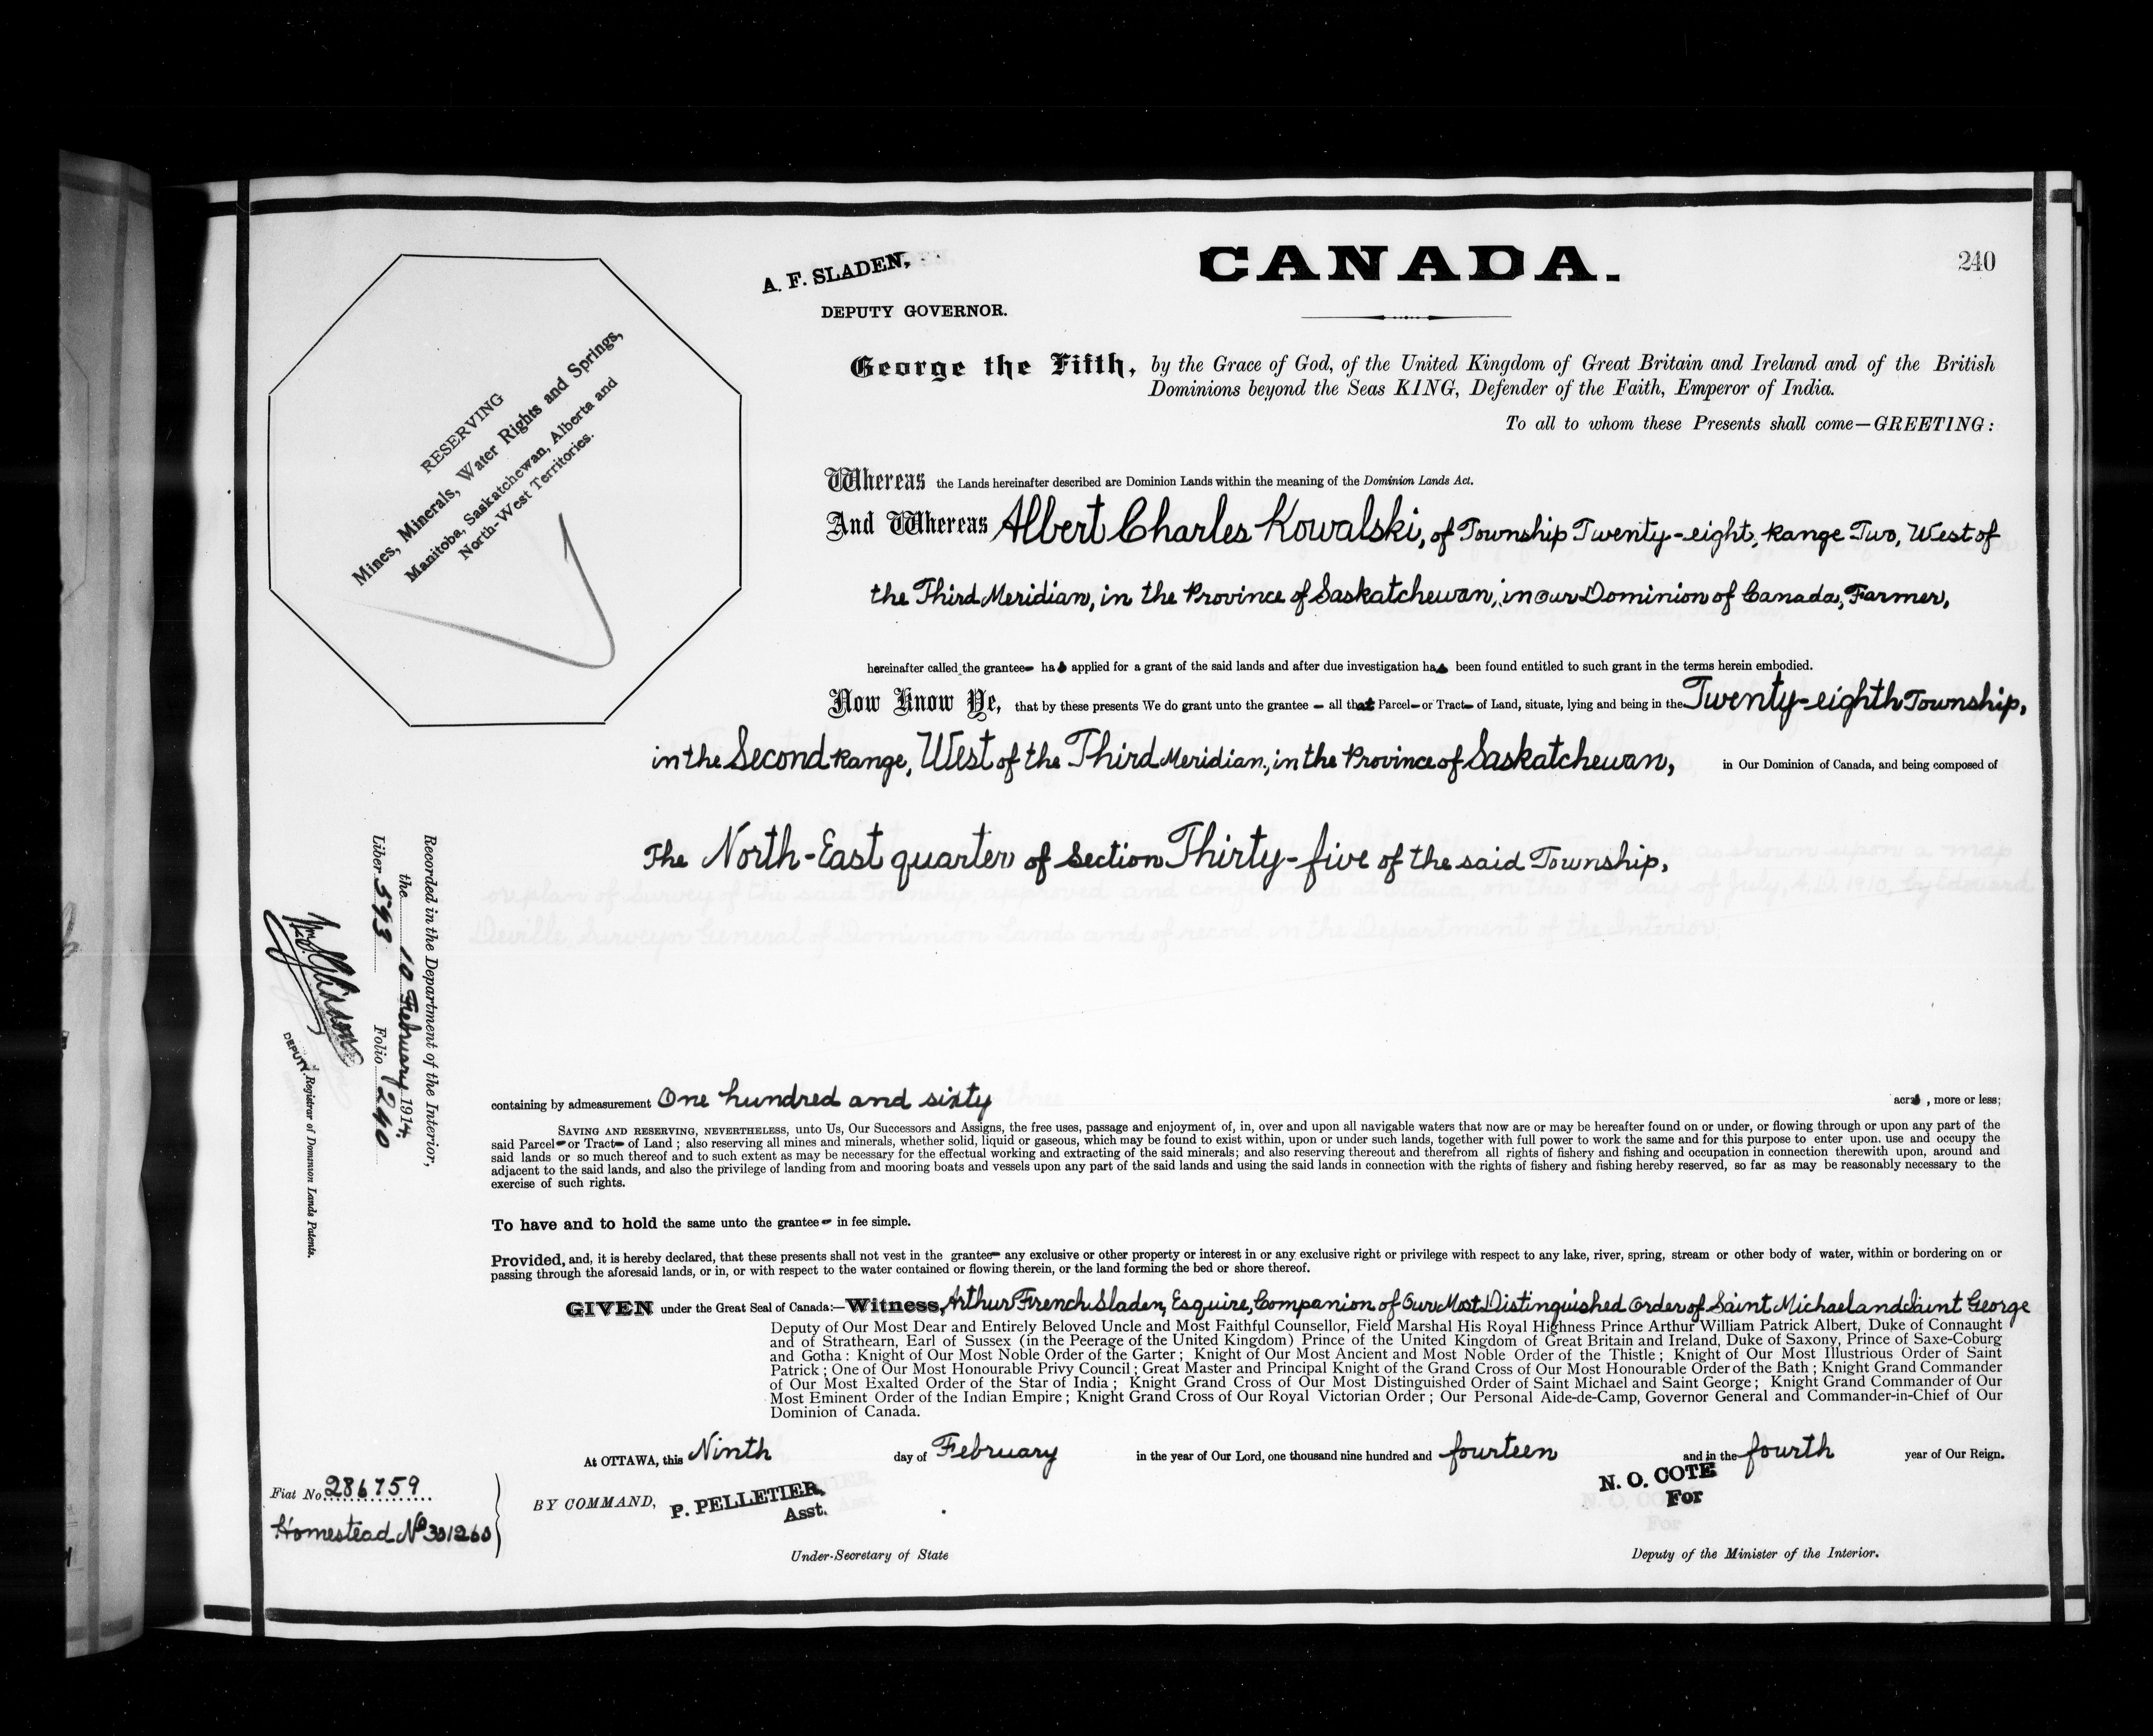 CANADA.
240
A. F. SLADEN,
DEPUTY GOVERNOR.
RESERVING
Mines, Minerals, Water Rights and Springs,
Manitoba, Saskatchewan, Alberta and
North-West Territories.
George the Fifth, by the Grace of God, of the United Kingdom of Great Britain and Ireland and of the British
Dominions beyond the Seas KING, Defender of the Faith, Emperor of India.
To all to whom these Presents shall come—GREETING:
Whereas the Lands hereinafter described are Dominion Lands within the meaning of the Dominion Lands Act.
And Whereas Albert Charles Kowalski, of Township Twenty-eight, Range Two, West of
the Third Meridian, in the Province of Saskatchewan, in Our Dominion of Canada, Farmer,
hereinafter called the grantee has applied for a grant of the said lands and after due investigation has been found entitled to such grant in the terms herein embodied.
Now Know Ye, that by these presents We do grant unto the grantee – all that Parcel or Tract of Land, situate, lying and being in the Twenty-eighth Township,
in the Second Range, West of the Third Meridian, in the Province of Saskatchewan, in Our Dominion of Canada, and being composed of
The North-East quarter of Section Thirty-five of the said Township,
containing by admeasurement One hundred and sixty acres, more or less;
SAVING AND RESERVING, NEVERTHELESS, unto Us, Our Successors and Assigns, the free uses, passage and enjoyment of, in, over and upon all navigable waters that now are or may be hereafter found on or under, or flowing through or upon any part of the
said Parcel or Tract of Land; also reserving all mines and minerals, whether solid, liquid or gaseous, which may be found to exist within, upon or under such lands, together with full power to work the same and for this purpose to enter upon. use and occupy the
said lands or so much thereof and to such extent as may be necessary for the effectual working and extracting of the said minerals; and also reserving thereout and therefrom all rights of fishery and fishing and occupation in connection therewith upon, around and
adjacent to the said lands, and also the privilege of landing from and mooring boats and vessels upon any part of the said lands and using the said lands in connection with the rights of fishery and fishing hereby reserved, so far as may be reasonably necessary to the
exercise of such rights.
To have and to hold the same unto the grantee in fee simple.
Provided, and, it is hereby declared, that these presents shall not vest in the grantee any exclusive or other property or interest in or any exclusive right or privilege with respect to any lake, river, spring, stream or other body of water, within or bordering on or
passing through the aforesaid lands, or in, or with respect to the water contained or flowing therein, or the land forming the bed or shore thereof.
GIVEN under the Great Seal of Canada:—Witness, Arthur French Sladen, Esquire, Companion of Our Most Distinguished Order of Saint Michael and Saint George
Deputy of Our Most Dear and Entirely Beloved Uncle and Most Faithful Counsellor, Field Marshal His Royal Highness Prince Arthur William Patrick Albert, Duke of Connaught
and of Strathearn, Earl of Sussex (in the Peerage of the United Kingdom) Prince of the United Kingdom of Great Britain and Ireland, Duke of Saxony, Prince of Saxe-Coburg
and Gotha: Knight of Our Most Noble Order of the Garter; Knight of Our Most Ancient and Most Noble Order of the Thistle; Knight of Our Most Illustrious Order of Saint
Patrick; One of Our Most Honourable Privy Council; Great Master and Principal Knight of the Grand Cross of Our Most Honourable Order of the Bath; Knight Grand Commander
of Our Most Exalted Order of the Star of India; Knight Grand Cross of Our Most Distinguished Order of Saint Michael and Saint George; Knight Grand Commander of Our
Most Eminent Order of the Indian Empire; Knight Grand Cross of Our Royal Victorian Order; Our Personal Aide-de-Camp, Governor General and Commander-in-Chief of Our
Dominion of Canada.
At OTTAWA, this Ninth day of February in the year of Our Lord, one thousand nine hundred and fourteen and in the fourth year of Our Reign.
BY COMMAND, P. PELLETIER,
Asst.
Under-Secretary of State
N. O. COTE
For
Deputy of the Minister of the Interior.
Fiat No. 286759
Homestead No 301260
Recorded in the Department of the Interior,
the 10 February 1914.
Liber 593 Folio 240
DEPUTY Registrar of Dominion Lands Patents.